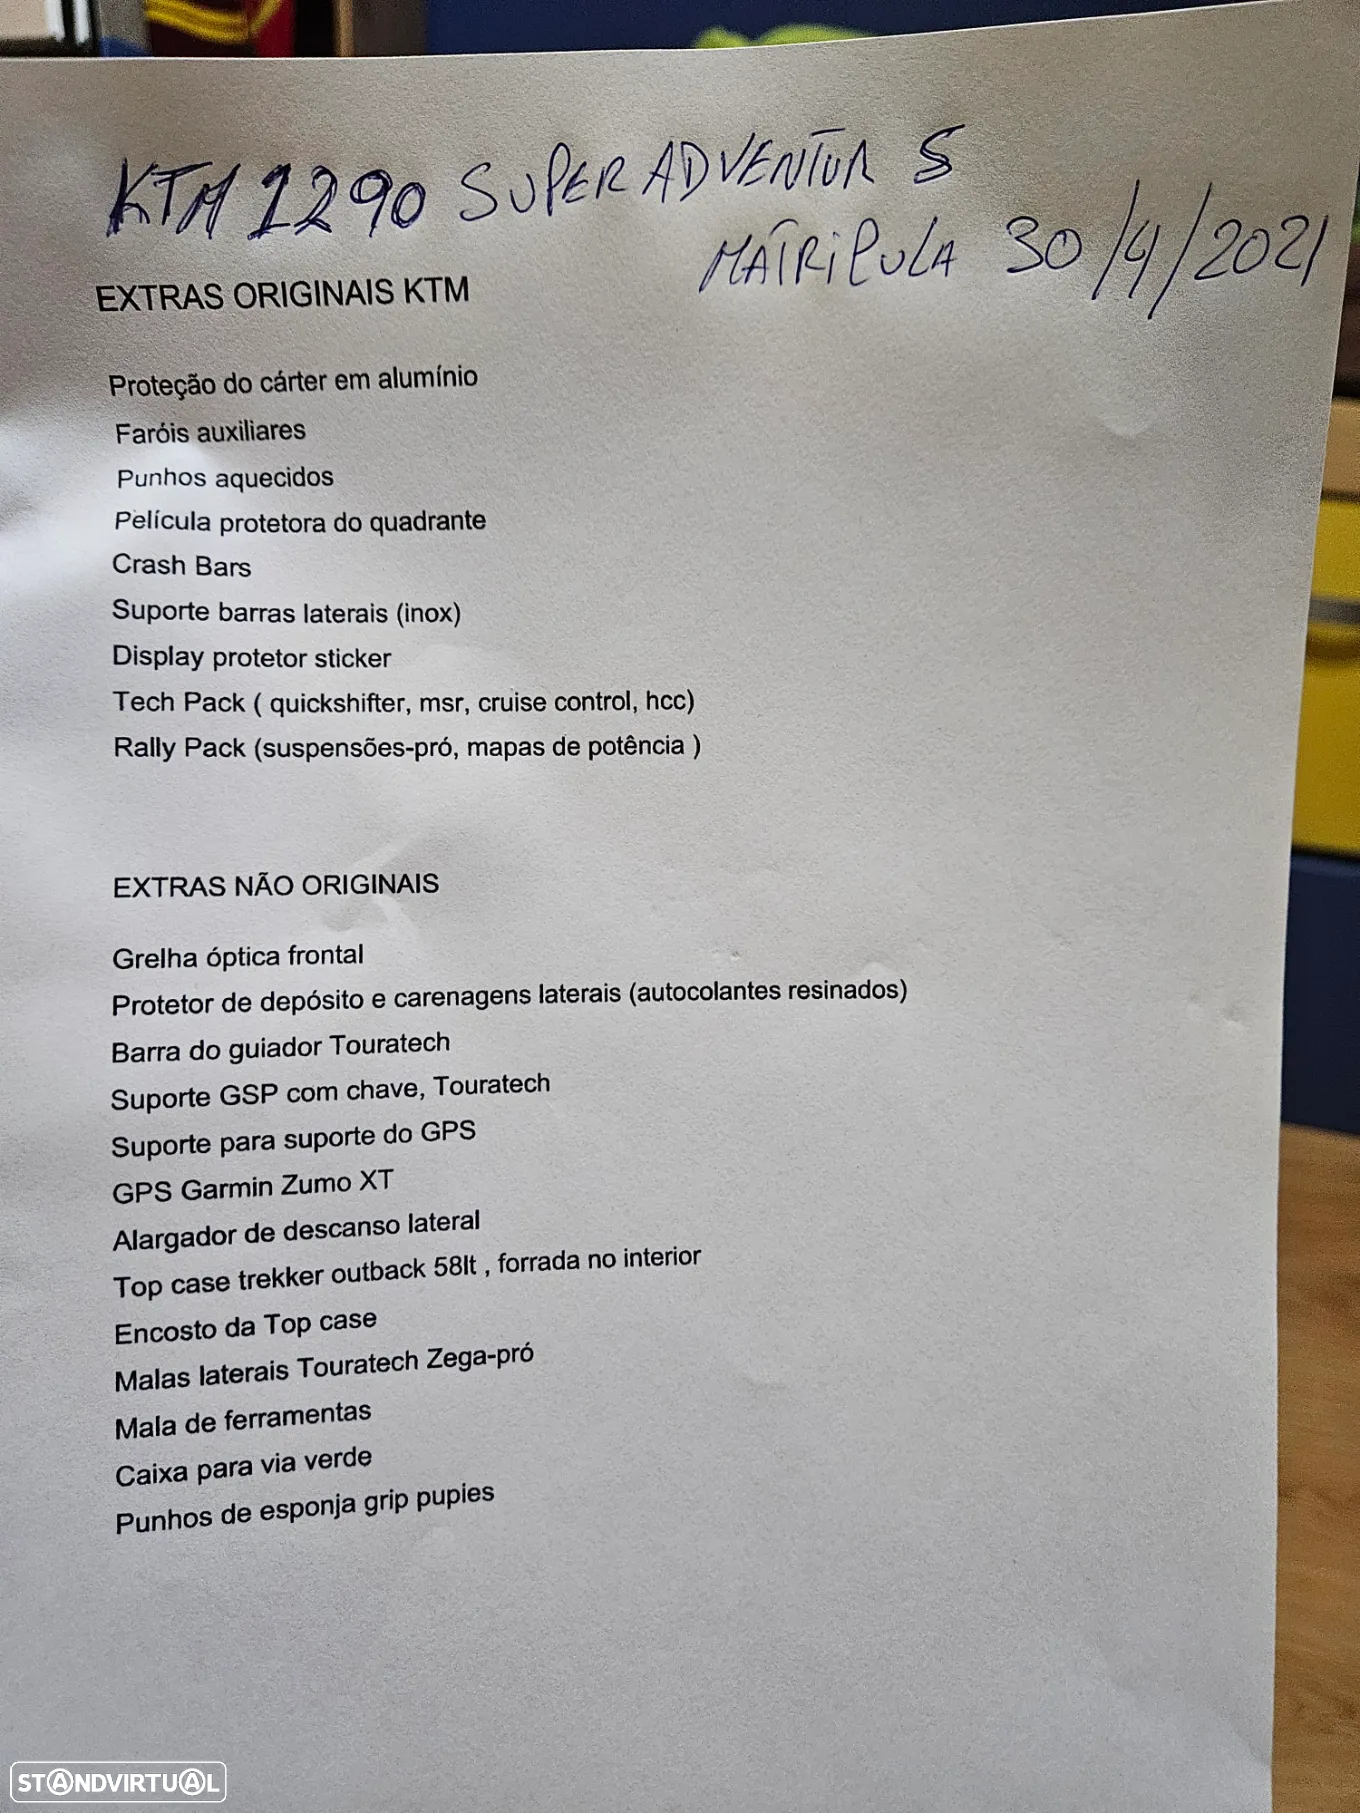 KTM 1290 SUPER ADVENTUR S
MATRICULA 30/4/2021
EXTRAS ORIGINAIS KTM
Proteção do cárter em alumínio
Faróis auxiliares
Punhos aquecidos
Película protetora do quadrante
Crash Bars
Suporte barras laterais (inox)
Display protetor sticker
Tech Pack ( quickshifter, msr, cruise control, hcc)
Rally Pack (suspensões-pró, mapas de potência )
EXTRAS NÃO ORIGINAIS
Grelha óptica frontal
Protetor de depósito e carenagens laterais (autocolantes resinados)
Barra do guiador Touratech
Suporte GSP com chave, Touratech
Suporte para suporte do GPS
GPS Garmin Zumo XT
Alargador de descanso lateral
Top case trekker outback 58lt , forrada no interior
Encosto da Top case
Malas laterais Touratech Zega-pró
Mala de ferramentas
Caixa para via verde
Punhos de esponja grip pupies
STANDVIRTUAL